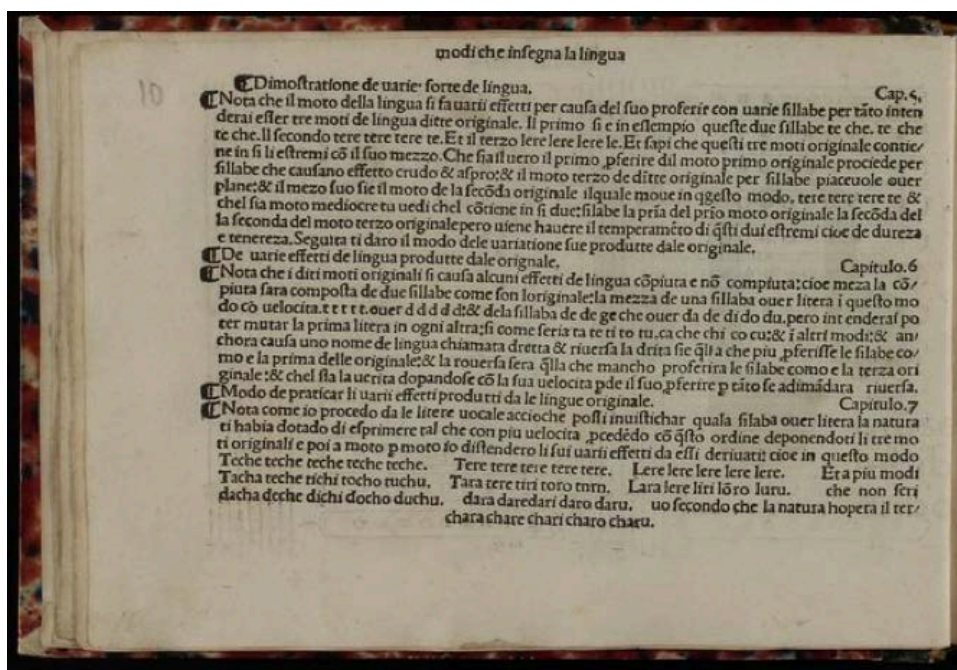 modi che insegna la lingua
10
Dimostratione de uarie sorte de lingua. Cap.5.
Nota che il moto della lingua si fa uarii effetti per causa del suo proferir con uarie sillabe per tãto inten
derai esser tre moti de lingua dittre originale. Il primo si e in essempio queste due sillabe te che. te che
te che. Il secondo tere tere tere te. Et il terzo lere lere lere le. Et sapi che questi tre moti originale contie/
ne in si li estremi cõ il suo mezzo. Che sia il uero il primo ꝓferire dil moto primo originale prociede per
sillabe che causano effetto crudo & aspro: & il moto terzo de ditre originale per sillabe piaceuole ouer
plane: & il mezo suo sie il moto de la secõda originale ilquale moue in qgesto modo, tere tere tere te &
chel sia moto mediocre tu uedi chel cõtiene in si due: silabe la pria del prio moto originale la secõda del
la seconda del moto terzo originale pero uiene hauere il temperamẽto di q̃sti dui estremi cioe de dureza
e tenereza. Seguita ti daro il modo dele uariatione sue produtte dale originale.
De uarie effetti de lingua produtte dale orignale. Capitulo.6
Nota che i diti moti originali si causa alcuni effetti de lingua cõpiuta e nõ compiuta: cioe meza la cõ/
piuta sara composta de due sillabe come son loriginale: la mezza de una sillaba ouer litera i questo mo
do cõ uelocita. t t t t t. ouer d d d d d: & dela sillaba de de ge che ouer da de di do du. pero intenderai po
ter mutar la prima litera in ogni altra: si come seria ta te ti to tu. ca che chi co cu: & ĩ altri modi: & an/
chora causa uno nome de lingua chiamata dretta & riuersa la drita sie q̃lla che piu ꝓferisse le silabe co/
mo e la prima delle originale: & la rouersa sera q̃lla che mancho proferira le silabe como e la terza ori
ginale: & chel sia la uerita dopandose cõ la sua uelocita pde il suo ꝓferire p tãto se adimãdara riuersa.
Modo de praticar li uarii effetti produtti da le lingue originale. Capitulo.7
Nota come io procedo da le litere uocale accioche possi inuistichar quala silaba ouer litera la natura
ti habia dotado di esprimere tal che con piu uelocita ꝓcedẽdo cõ q̃sto ordine deponendoti li tre mo
ti originali e poi a moto p moto io distendero li sui uarii effetti da essi deriuati: cioe in questo modo
Teche teche teche teche teche. Tere tere tere tere tere. Lere lere lere lere lere. Et a piu modi
Tacha teche tichi tocho tuchu. Tara tere tiri toro turu. Lara lere liri lõro luru. che non scri
dacha deche dichi docho duchu. dara daredari daro daru. uo secondo che la natura hopera il ter/
chara chare chari charo charu.